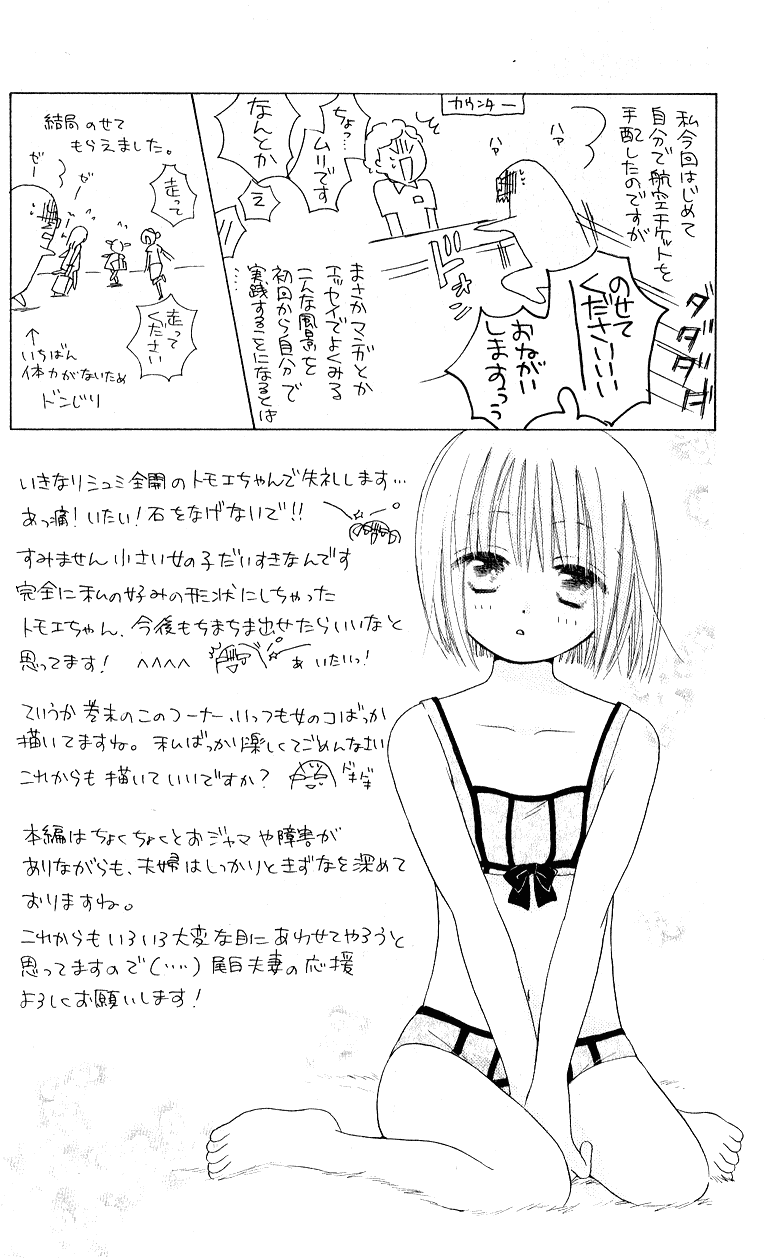 私今回はじめて
自分で航空チケットを
手配したのですが
カウンター
ハァ
ハァ
ダダダダ
のせて
くださいいい
おねがい
しますぅぅ
ドン
ちょっ…
ムリです
え
なんとか
まさかマンガとか
エッセイでよくみる
こんな風景を
初回から自分で
実践することになるとは
……
結局のせて
もらえました。
ゼー
ゼー
走って
走って
ください
↑
いちばん
体力がないため
ドンじり
いきなりシュミ全開のトモエちゃんで失礼します…
あっ痛!いたい!石をなげないで!!
すみません小さい女の子だいすきなんです
完全に私の好みの形状にしちゃった
トモエちゃん、今後もちまちま出せたらいいなと
思ってます! ^^^^ あ いたいっ!
ていうか巻末のこのコーナー、いっつも女のコばっか
描いてますね。私ばっかり楽しくてごめんなさい
これからも描いていいですか? ドキドキ
本編はちょくちょくとおジャマや障害が
ありながらも、夫婦はしっかりときずなを深めて
おりますね。
これからもいろいろ大変な目にあわせてやろうと
思ってますので(…)尾白夫妻の応援
よろしくお願いします!